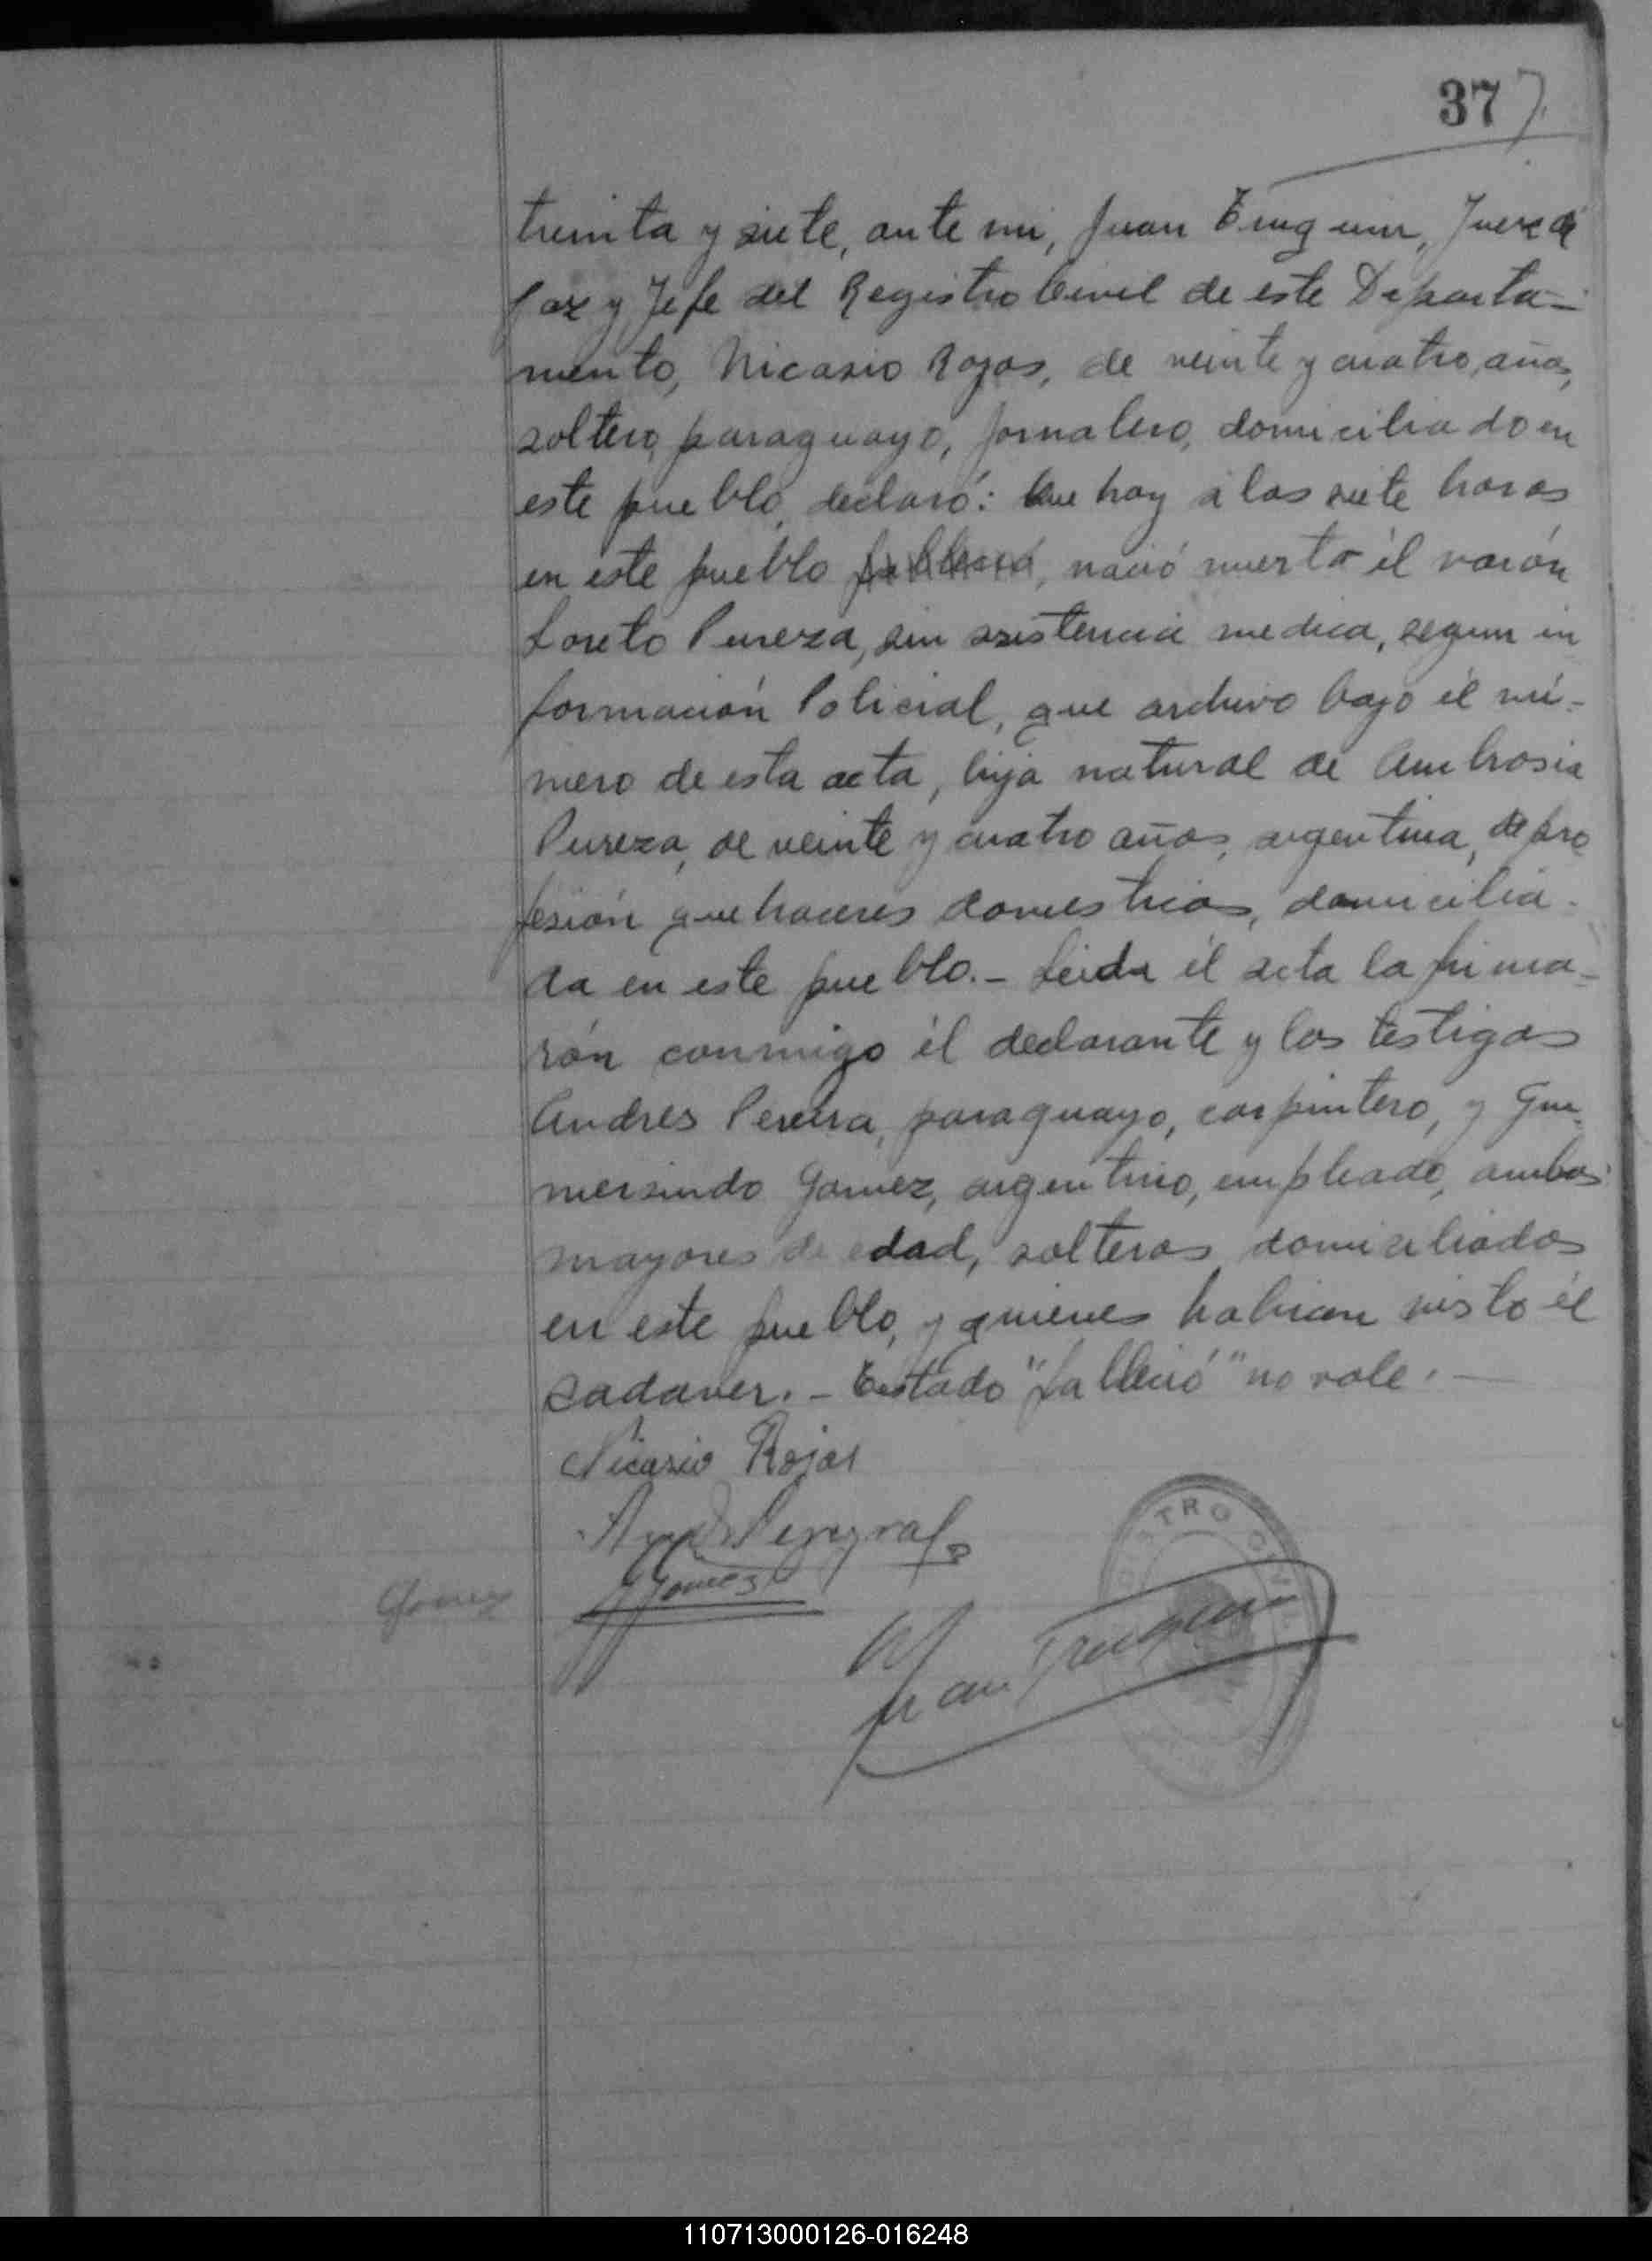 37
treinta y siete, ante mi, Juan Juez de
Paz y Jefe del Registro Civil de este Departa-
mento, Nicasio Rojas, de veinte y cuatro, años,
soltero, paraguayo, jornalero, domiciliado en
este pueblo, declaró: Que hoy á las siete horas
en este pueblo falleció, nació muerto él varón
Loreto Pureza, sin asistencia medica, segun in
formación Policial, que archivo bajo él nú-
mero de esta acta, hija natural de Ambrosia
Pureza, de veinte y cuatro años, argentina, de pro
fesión quehaceres domesticos, domicilia-
da en este pueblo.- Leida él acta la firma-
rón conmigo él declarante y los testigos
Andres Pereira, paraguayo, carpintero, y Gu-
mersindo Gomez, argentino, empleado, ambos
mayores de edad, solteros, domiciliados
en este pueblo, y quienes habian visto él
cadaver.- Testado "falleció" no vale.-
Nicasio Rojas
Gomez
Gomez
Juan
REGISTRO CIVIL
110713000126-016248